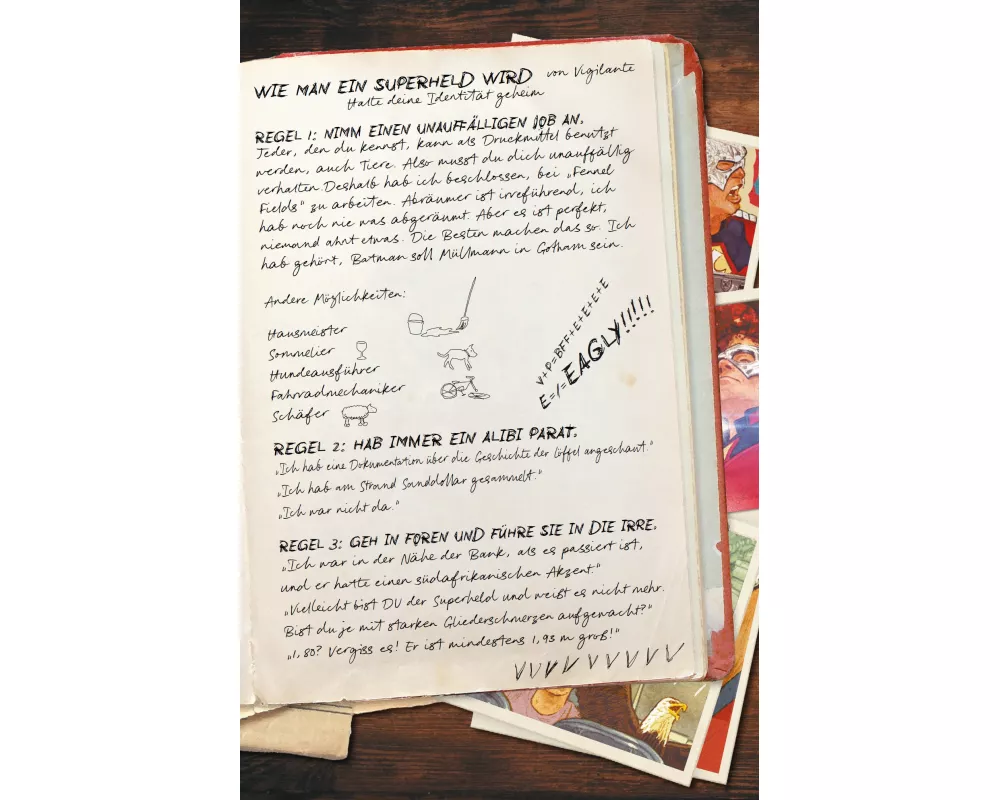 WIE MAN EIN SUPERHELD WIRD von Vigilante
Halte deine Identität geheim
REGEL 1: NIMM EINEN UNAUFFÄLLIGEN JOB AN.
Jeder, den du kennst, kann als Druckmittel benutzt
werden, auch Tiere. Also musst du dich unauffällig
verhalten. Deshalb hab ich beschlossen, bei „Fennel
Fields“ zu arbeiten. Abräumer ist irreführend, ich
hab noch nie was abgeräumt. Aber es ist perfekt,
niemand ahnt etwas. Die Besten machen das so. Ich
hab gehört, Batman soll Müllmann in Gotham sein.
Andere Möglichkeiten:
Hausmeister
Sommelier
Hundeausführer
Fahrradmechaniker
Schäfer
V+P=BFF+E+E+E+E+E
E=/=EAGLY!!!!!
REGEL 2: HAB IMMER EIN ALIBI PARAT.
„Ich hab eine Dokumentation über die Geschichte der Löffel angeschaut.“
„Ich hab am Strand Sanddollar gesammelt.“
„Ich war nicht da.“
REGEL 3: GEH IN FOREN UND FÜHRE SIE IN DIE IRRE.
„Ich war in der Nähe der Bank, als es passiert ist,
und er hatte einen südafrikanischen Akzent.“
„Vielleicht bist DU der Superheld und weißt es nicht mehr.
Bist du je mit starken Gliederschmerzen aufgewacht?“
„1,80? Vergiss es! Er ist mindestens 1,93 m groß!“
V V V V V V V V V